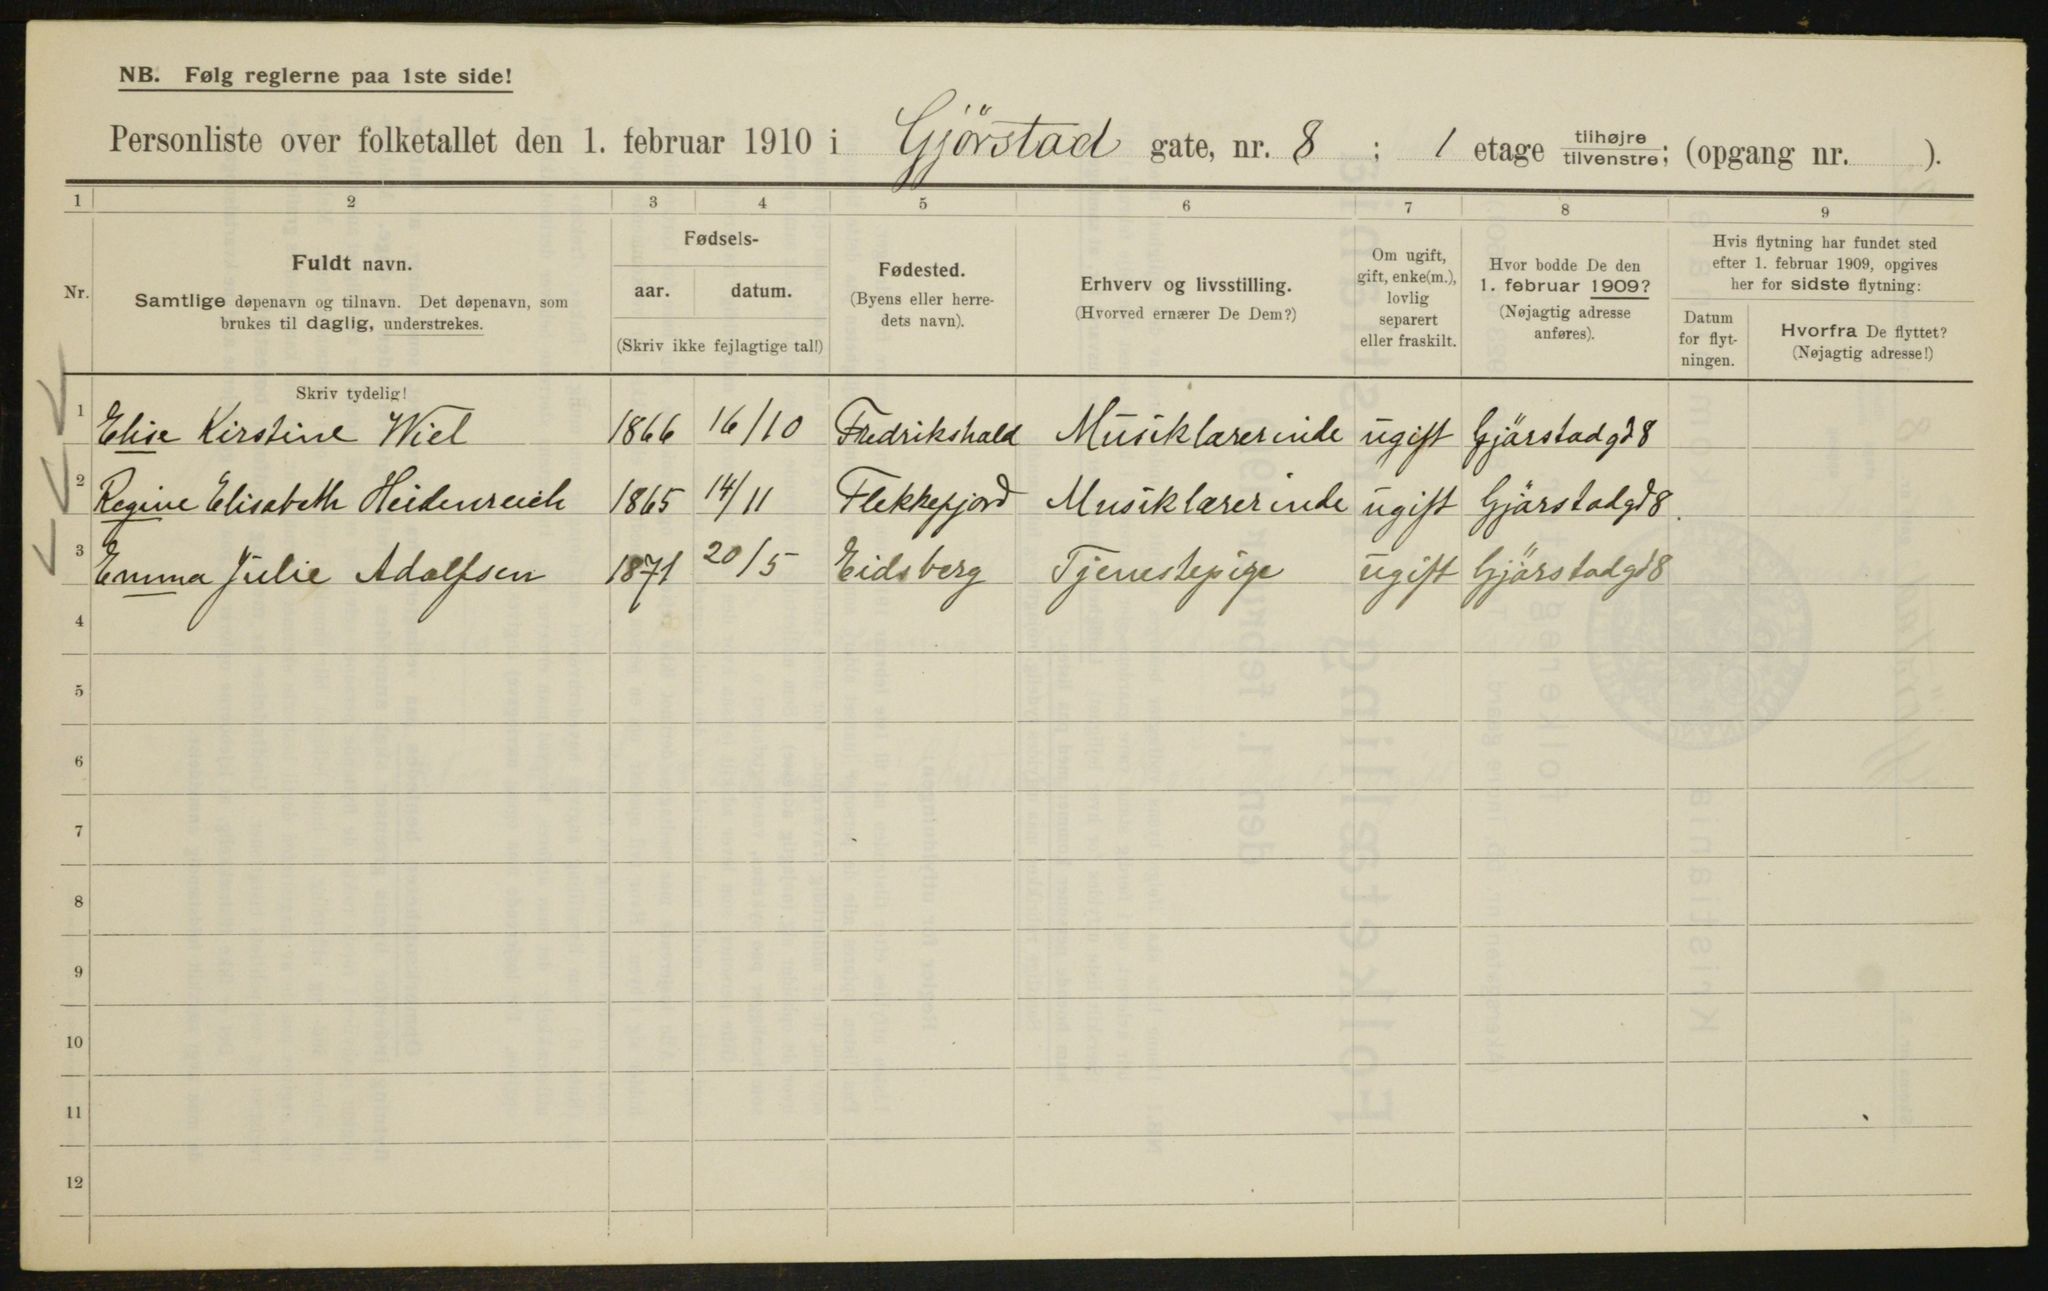 NB. Følg reglerne paa 1ste side!
Personliste over folketallet den 1. februar 1910 i Gjörstad gate, nr. 8 ; 1 etage tilhøjre/tilvenstre; (opgang nr. ).
1 2 3 4 5 6 7 8 9
Nr.
Fuldt navn.
Samtlige døpenavn og tilnavn. Det døpenavn, som
brukes til daglig, understrekes.
Fødsels-
aar. datum.
(Skriv ikke fejlagtige tal!)
Fødested.
(Byens eller herre-
dets navn).
Erhverv og livsstilling.
(Hvorved ernærer De Dem?)
Om ugift,
gift, enke(m.),
lovlig
separert
eller fraskilt.
Hvor bodde De den
1. februar 1909?
(Nøjagtig adresse
anføres).
Hvis flytning har fundet sted
efter 1. februar 1909, opgives
her for sidste flytning:
Datum
for flyt-
ningen.
Hvorfra De flyttet?
(Nøjagtig adresse!)
Skriv tydelig!
1 Elise Kirstine Wiel 1866 16/10 Fredrikshald Musiklærerinde ugift Gjörstadgd 8
2 Regine Elisabeth Heidenreich 1865 14/11 Flekkefjord Musiklærerinde ugift Gjörstadgd 8.
3 Emma Julie Adolfsen 1871 20/5 Eidsberg Tjenestepige ugift Gjörstadgd 8
4
5
6
7
8
9
10
11
12